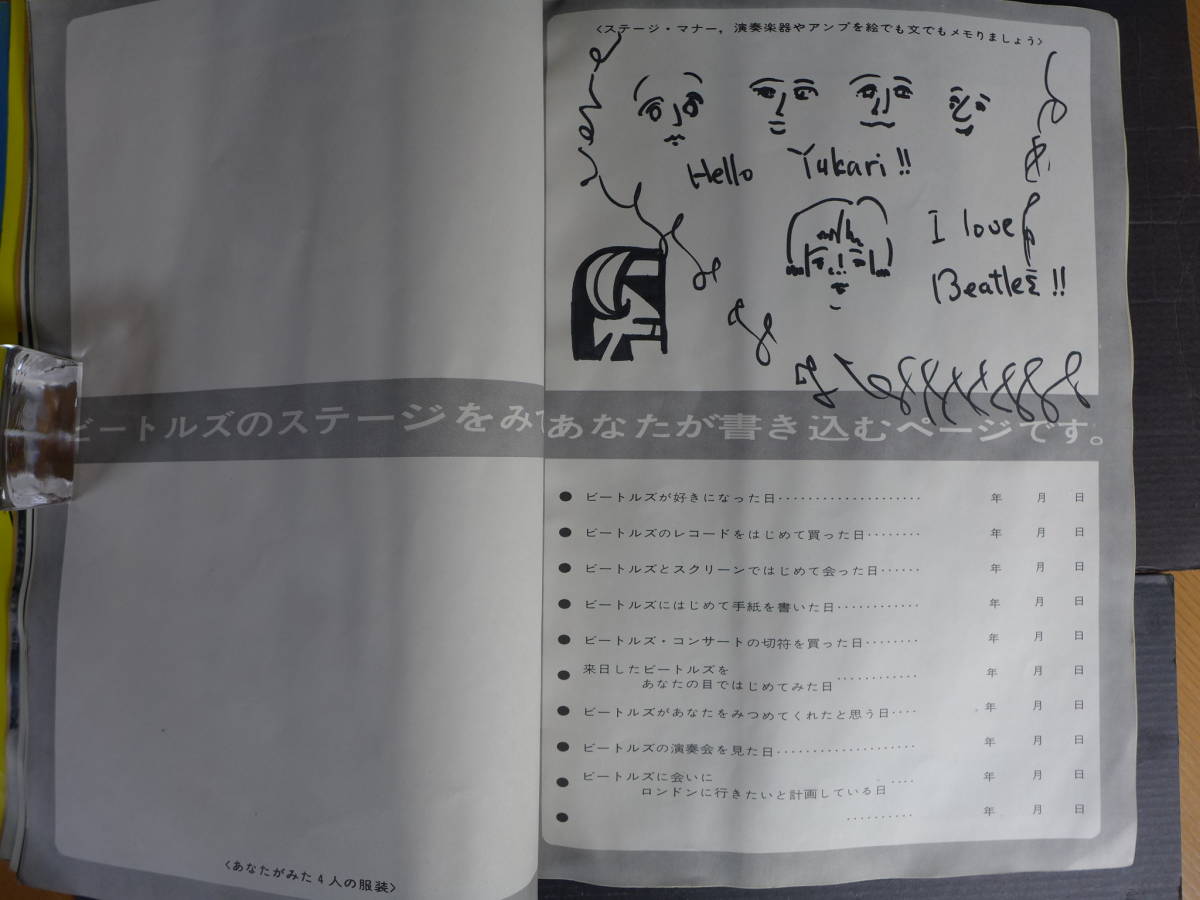 〈ステージ・マナー，演奏楽器やアンプを絵でも文でもメモりましょう〉
Hello Yukari!!
I love
Beatles!!
ビートルズのステージをみて あなたが書き込むページです。
● ビートルズが好きになった日····················· 年 月 日
● ビートルズのレコードをはじめて買った日········ 年 月 日
● ビートルズとスクリーンではじめて会った日······ 年 月 日
● ビートルズにはじめて手紙を書いた日············ 年 月 日
● ビートルズ・コンサートの切符を買った日········ 年 月 日
● 来日したビートルズを
あなたの目ではじめてみた日 ············ 年 月 日
● ビートルズがあなたをみつめてくれたと思う日···· 年 月 日
● ビートルズの演奏会を見た日···················· 年 月 日
● ビートルズに会いに
ロンドンに行きたいと計画している日 ···· 年 月 日
● ·········· 年 月 日
〈あなたがみた4人の服装〉